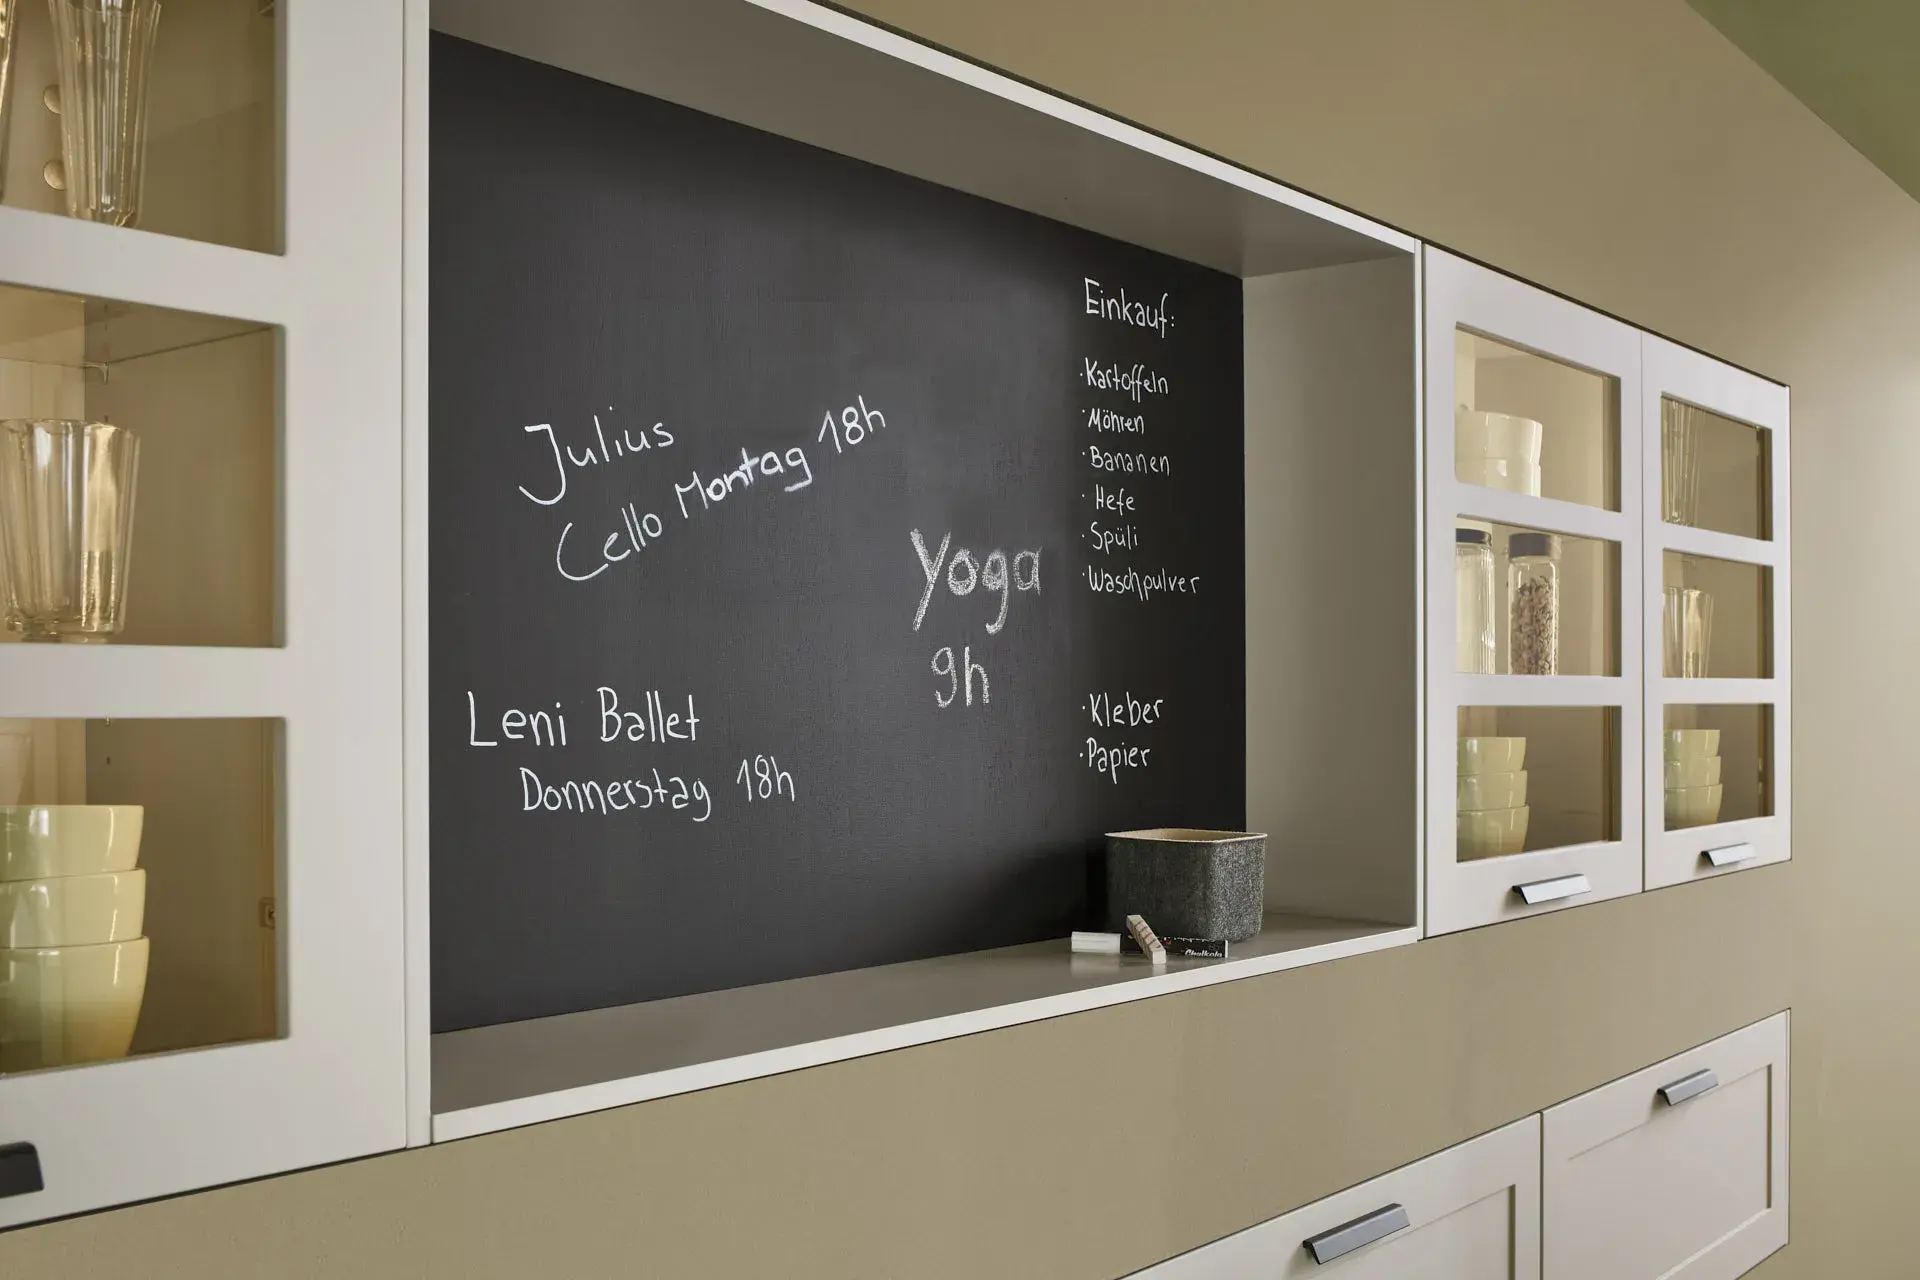 Julius
Cello Montag 18h
Leni Ballet
Donnerstag 18h
Yoga
9h
Einkauf:
·Kartoffeln
·Möhren
·Bananen
·Hefe
·Spüli
·Waschpulver
·Kleber
·Papier